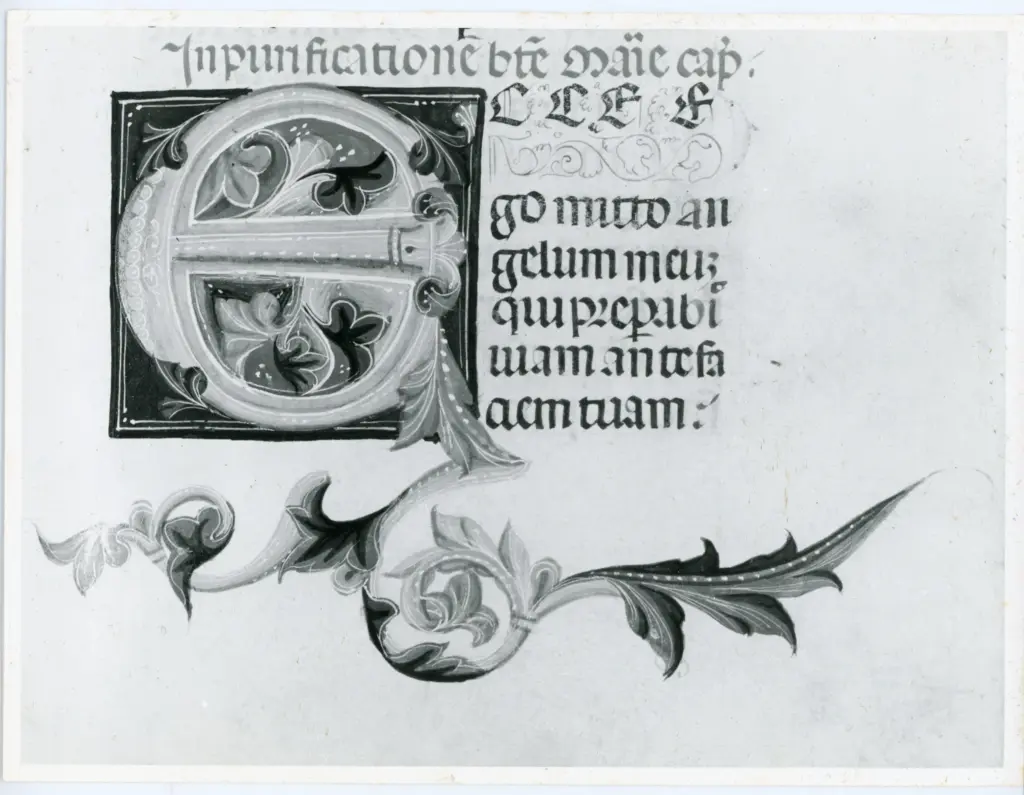 In purificationē btē Maīe cap̄.
E C C E E
go mitto an
gelum meuz
qui prep̱abī
uiam ante fa
ciem tuam :